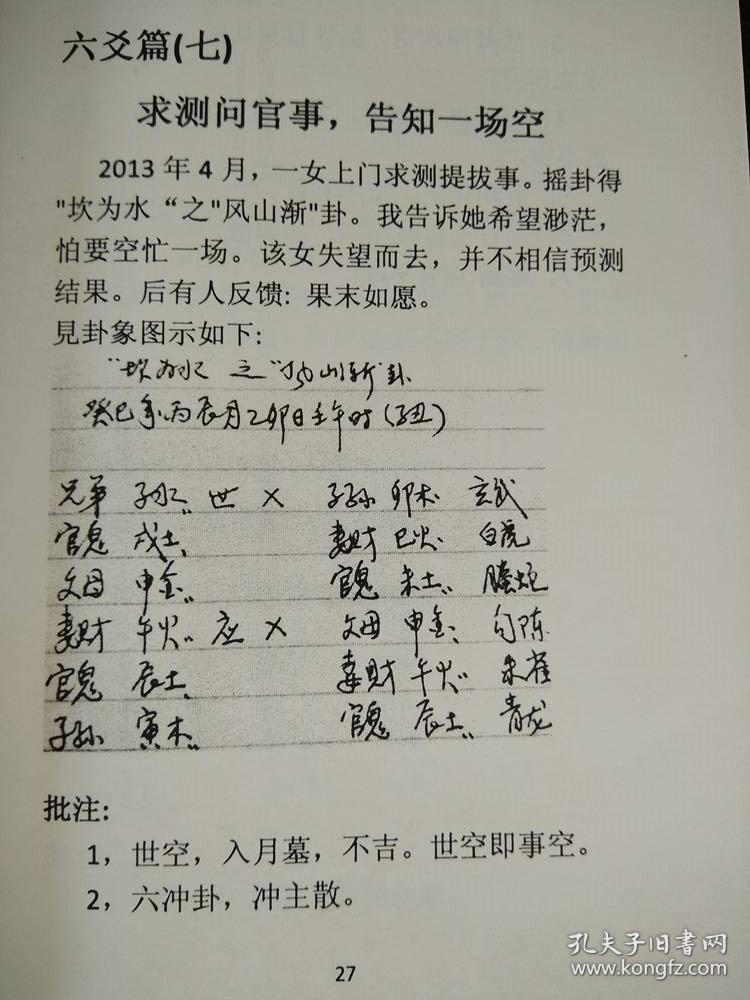 六爻篇(七)
求测问官事，告知一场空
2013年4月，一女上门求测提拔事。摇卦得
"坎为水“之"风山渐"卦。我告诉她希望渺茫，
怕要空忙一场。该女失望而去，并不相信预测
结果。后有人反馈：果末如愿。
見卦象图示如下：
"坎为水 之"风山渐"卦
癸巳年丙辰月乙卯日壬午时(子丑)
兄弟 子水〃 世 × 子孙 卯木 玄武
官鬼 戌土、 妻财 巳火、 白虎
父母 申金〃 官鬼 未土〃 螣蛇
妻财 午火〃 应 × 父母 申金、 勾陈
官鬼 辰土、 妻财 午火〃 朱雀
子孙 寅木〃 官鬼 辰土〃 青龙
批注：
1，世空，入月墓，不吉。世空即事空。
2，六冲卦，冲主散。
27
孔夫子旧书网
www.kongfz.com